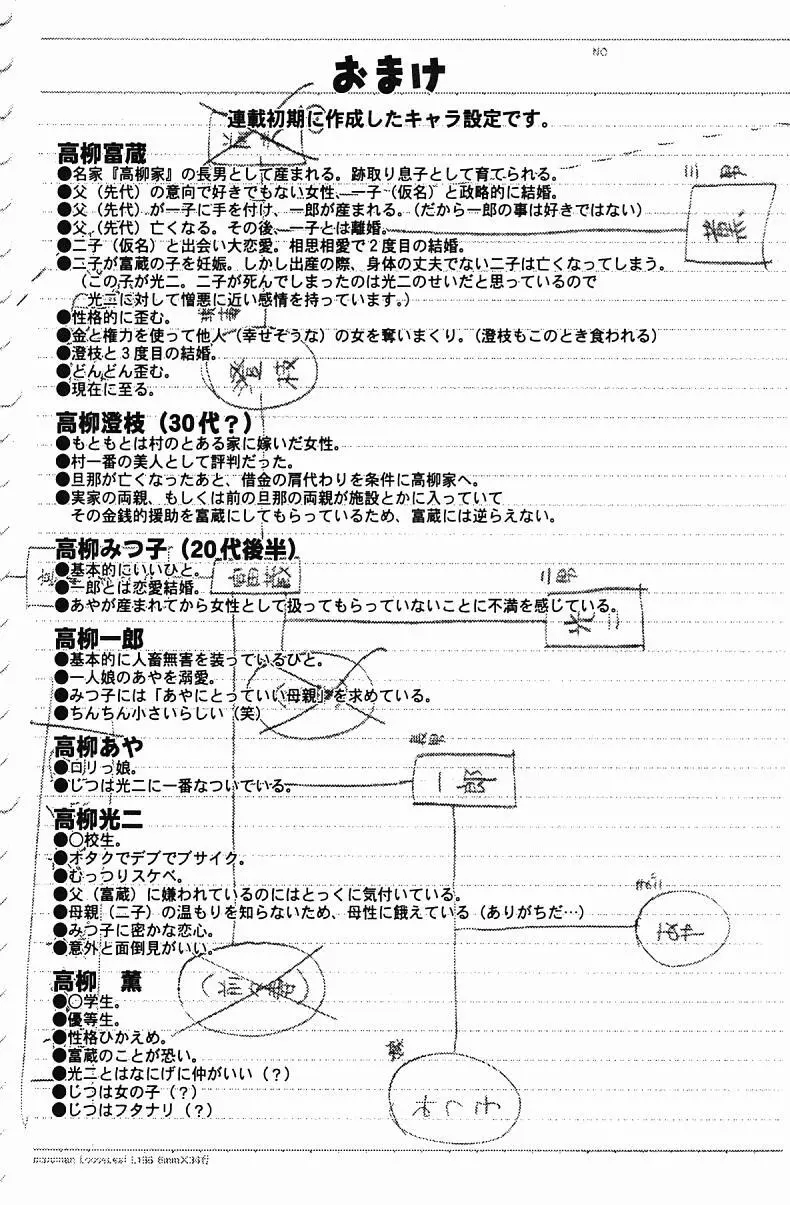 NO
おまけ
連載初期に作成したキャラ設定です。
高柳富蔵
●名家『高柳家』の長男として産まれる。跡取り息子として育てられる。
●父（先代）の意向で好きでもない女性、一子（仮名）と政略的に結婚。
●父（先代）が一子に手を付け、一郎が産まれる。（だから一郎の事は好きではない）
●父（先代）亡くなる。その後、一子とは離婚。
●二子（仮名）と出会い大恋愛。相思相愛で２度目の結婚。
●二子が富蔵の子を妊娠。しかし出産の際、身体の丈夫でない二子は亡くなってしまう。
（この子が光二。二子が死んでしまったのは光二のせいだと思っているので
光二に対して憎悪に近い感情を持っています。）
●性格的に歪む。
●金と権力を使って他人（幸せそうな）の女を奪いまくり。（澄枝もこのとき食われる）
●澄枝と３度目の結婚。
●どんどん歪む。
●現在に至る。
三郎
薫
澄枝
高柳澄枝（30代？）
●もともとは村のとある家に嫁いだ女性。
●村一番の美人として評判だった。
●旦那が亡くなったあと、借金の肩代わりを条件に高柳家へ。
●実家の両親、もしくは前の旦那の両親が施設とかに入っていて
その金銭的援助を富蔵にしてもらっているため、富蔵には逆らえない。
高柳みつ子（20代後半）
●基本的にいいひと。
●一郎とは恋愛結婚。
●あやが産まれてから女性として扱ってもらっていないことに不満を感じている。
富蔵
二郎
光二
高柳一郎
●基本的に人畜無害を装っているひと。
●一人娘のあやを溺愛。
●みつ子には「あやにとっていい母親」を求めている。
●ちんちん小さいらしい（笑）
高柳あや
●ロリっ娘。
●じつは光二に一番なついでいる。
一郎
高柳光二
●〇校生。
●オタクでデブでブサイク。
●むっつりスケベ。
●父（富蔵）に嫌われているのにはとっくに気付いている。
●母親（二子）の温もりを知らないため、母性に餓えている（ありがちだ…）
●みつ子に密かな恋心。
●意外と面倒見がいい。
あや
高柳　薫
●〇学生。
●優等生。
●性格ひかえめ。
●富蔵のことが恐い。
●光二とはなにげに仲がいい（？）
●じつは女の子（？）
●じつはフタナリ（？）
みつ子